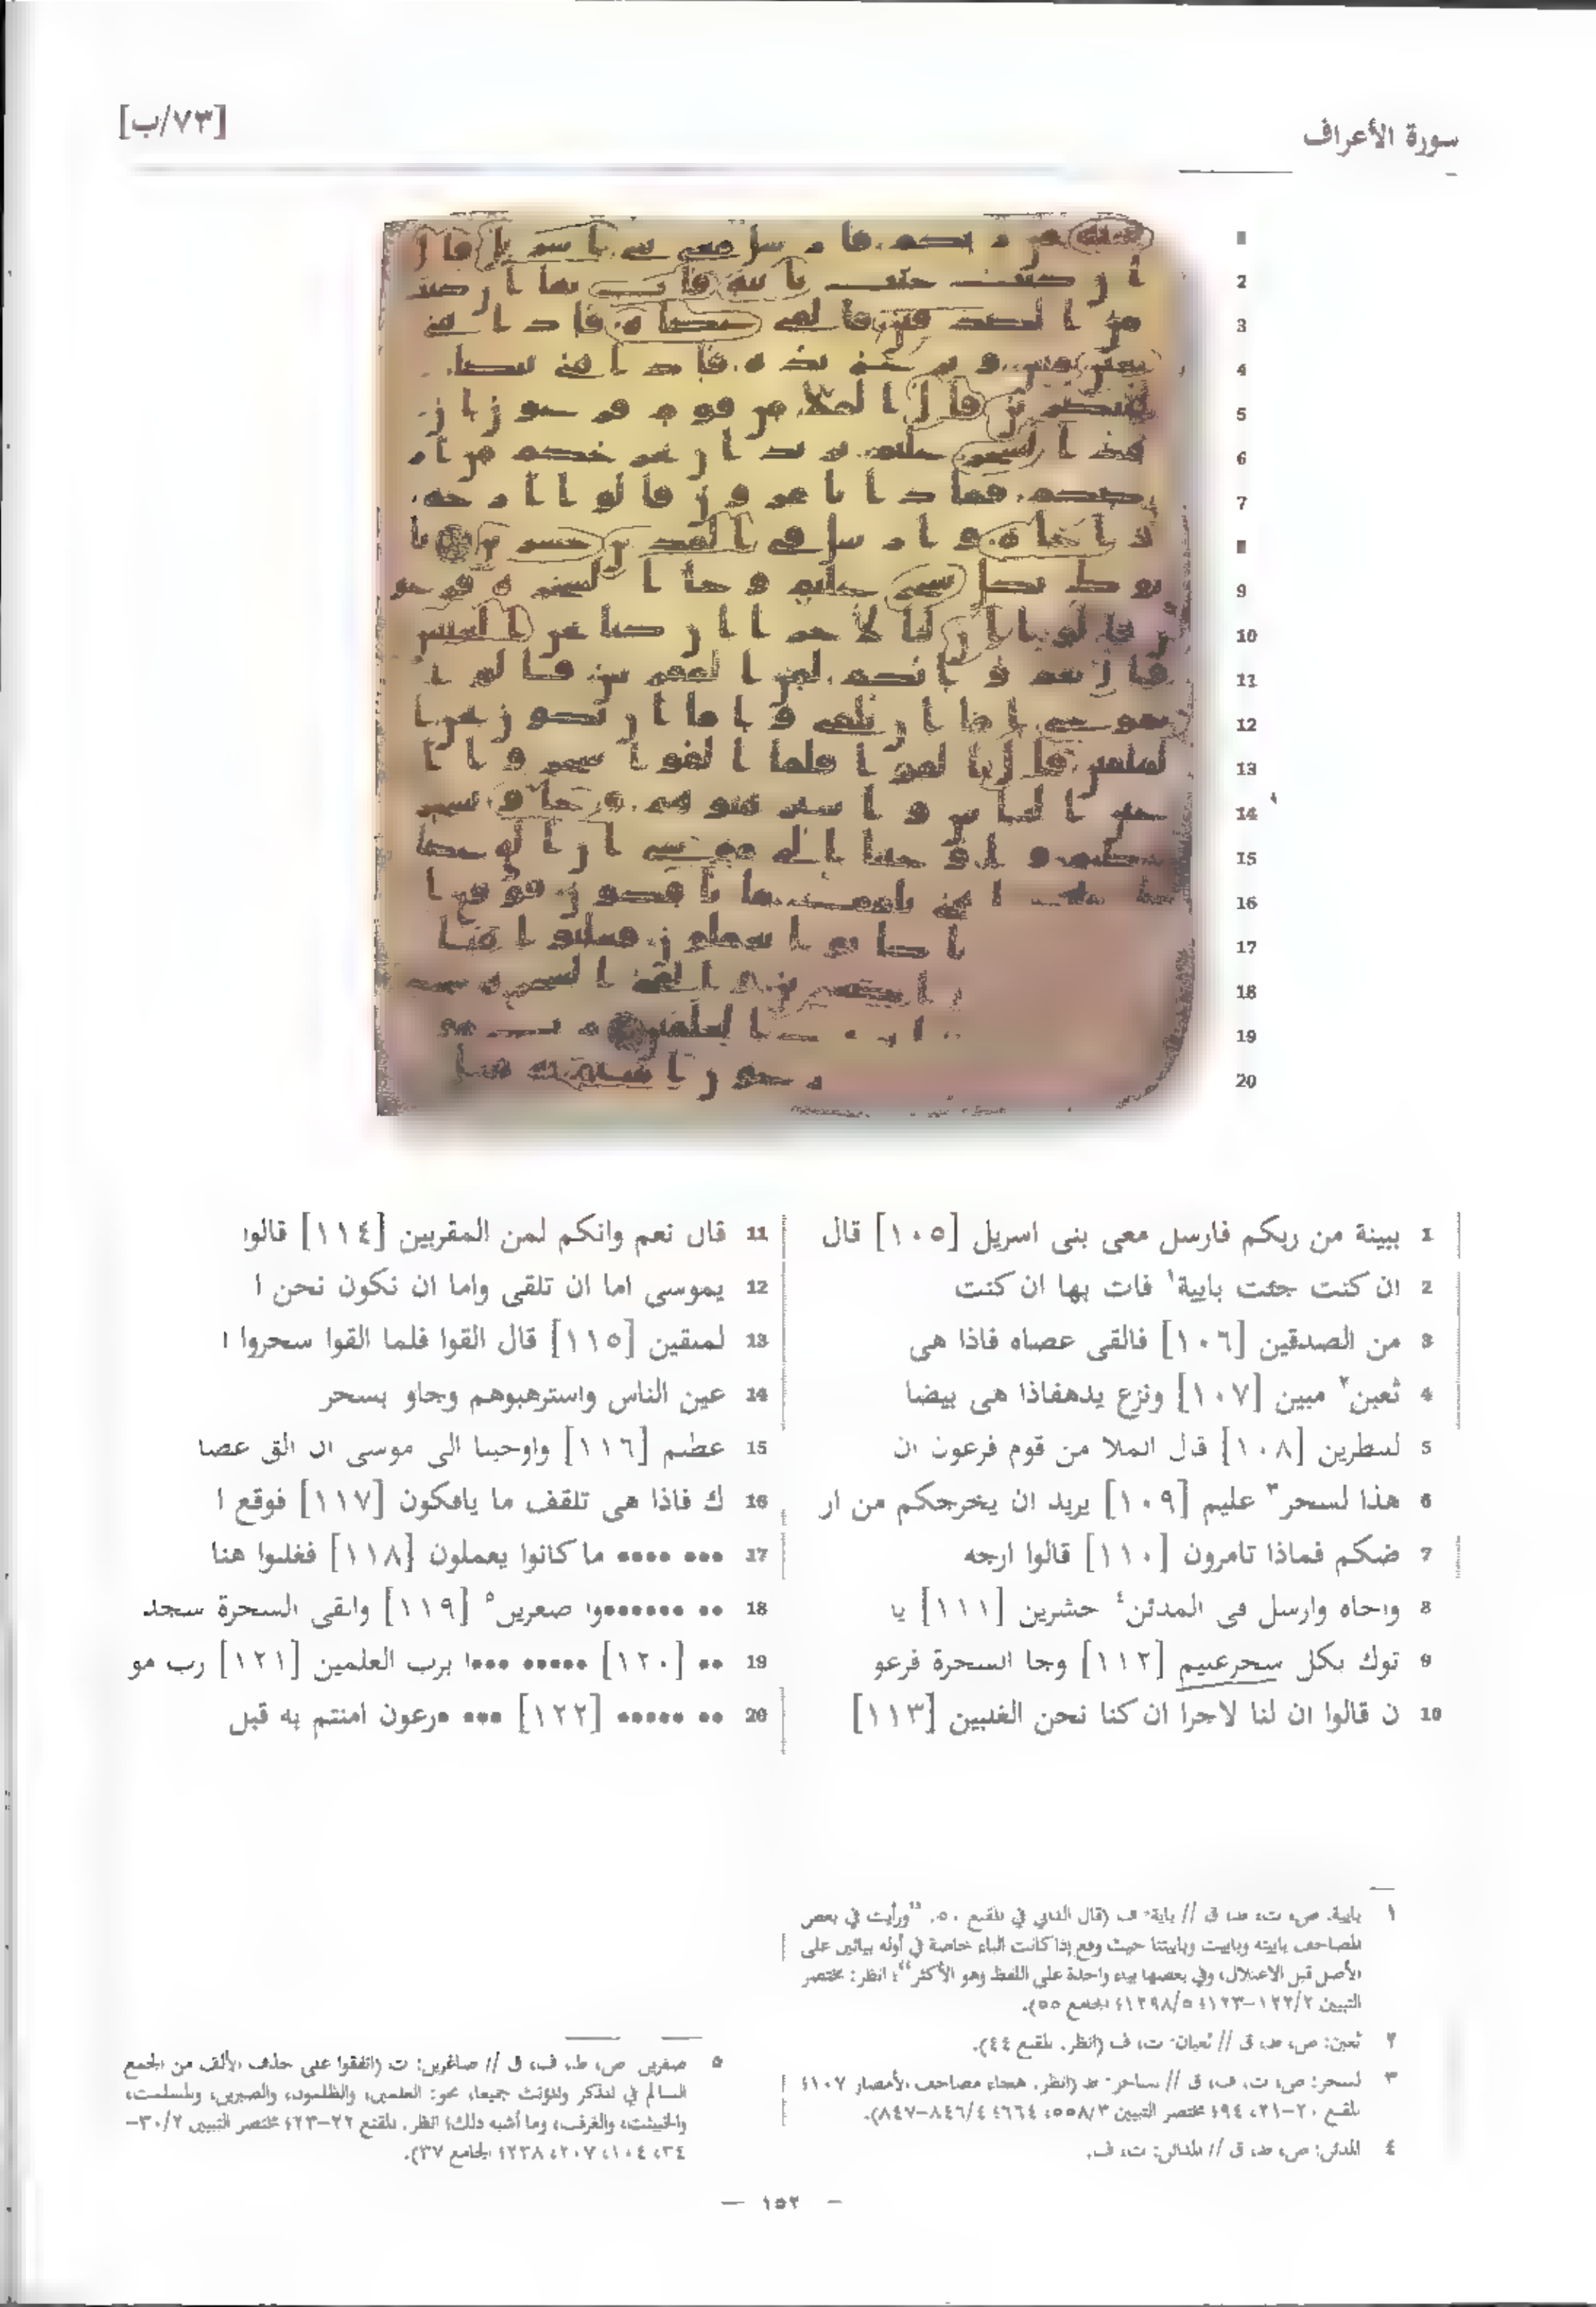 سورة الأعراف
[٧٣/ب]
1 ببينة من ربكم فارسل معى بنى اسريل [١٠٥] قال
2 ان كنت جئت بايية١ فات بها ان كنت
3 من الصدقين [١٠٦] فالقى عصاه فاذا هى
4 ثعبن٢ مبين [١٠٧] ونزع يدهفاذا هى بيضا
5 للنظرين [١٠٨] قال الملا من قوم فرعون ان
6 هذا لسحر٣ عليم [١٠٩] يريد ان يخرجكم من ار
7 ضكم فماذا تامرون [١١٠] قالوا ارجه
8 واخاه وارسل فى المدئن٤ حشرين [١١١] يا
9 توك بكل سحرعليم [١١٢] وجا السحرة فرعو
10 ن قالوا ان لنا لاجرا ان كنا نحن الغلبين [١١٣]
11 قال نعم وانكم لمن المقربين [١١٤] قالوا
12 يموسى اما ان تلقى واما ان نكون نحن ا
13 لملقين [١١٥] قال القوا فلما القوا سحروا ا
14 عين الناس واسترهبوهم وجاو بسحر
15 عظيم [١١٦] واوحينا الى موسى ان الق عصا
16 ك فاذا هى تلقف ما يافكون [١١٧] فوقع ا
17 ••• •••• ما كانوا يعملون [١١٨] فغلبوا هنا
18 •• •••••••وا صغرين٥ [١١٩] والقى السحرة سجد
19 •• [١٢٠] ••••• •••ا برب العلمين [١٢١] رب مو
20 •• ••••• [١٢٢] ••• •رعون امنتم به قبل
١ بايية: ص، ت، ط، ق // باية: ف (قال الداني في المقنع ٥٠: "ورأيت في بعض
المصاحف باييته وباييت وباييتنا حيث وقع إذا كانت الباء خاصة في أوله بيائين على
الأصل قبل الاعتلال، وفي بعضها بياء واحدة على اللفظ وهو الأكثر"؛ انظر: مختصر
التبيين ١٢٢/٢-١٢٣؛ ١٢٩٨/٥؛ الجامع ٥٥).
٢ ثعبن: ص، ط، ق // ثعبان: ت، ف (انظر: المقنع ٤٤).
٣ لسحر: ص، ت، ف، ق // لساحر: ط (انظر: هجاء مصاحف الأمصار ١٠٧؛
المقنع ٢٠-٢١، ٩٤؛ مختصر التبيين ٥٥٨/٣، ٦٦٤؛ ٨٤٦/٤-٨٤٧).
٤ المدئن: ص، ط، ق // المدائن: ت، ف.
٥ صغرين: ص، ط، ف، ق // صاغرين: ت (اتفقوا على حذف الألف من الجمع
السالم في المذكر والمؤنث جميعا، نحو: العلمين، والظلمون، والصبرين، والمسلمت،
والخبيثت، والغرفت، وما أشبه ذلك؛ انظر: المقنع ٢٢-٢٣؛ مختصر التبيين ٣٠/٢-
٣٤، ١٠٤، ٢٠٧، ٢٣٨؛ الجامع ٣٧).
— ١٥٢ —